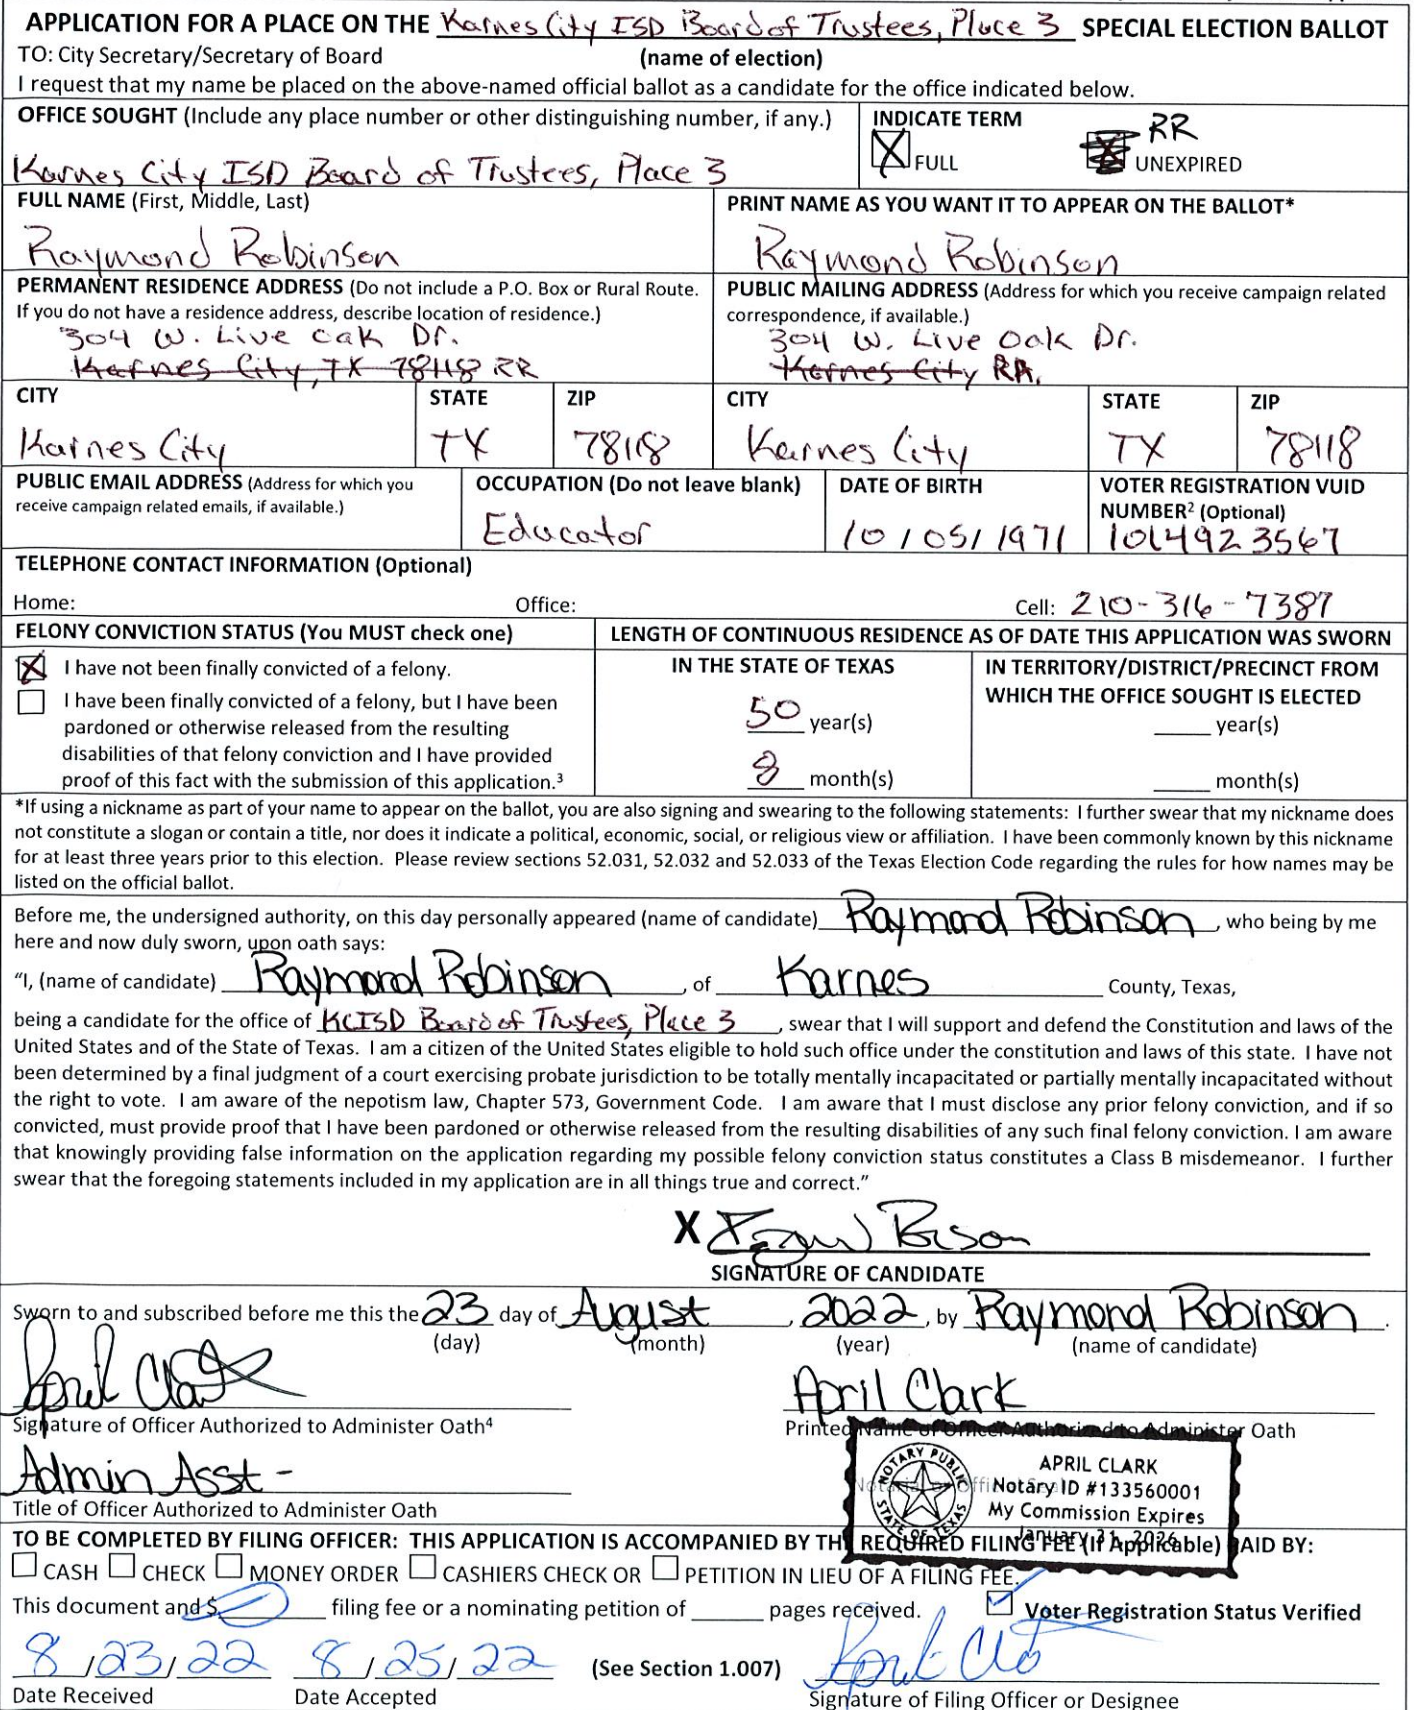 APPLICATION FOR A PLACE ON THE Karnes City ISD Board of Trustees, Place 3 SPECIAL ELECTION BALLOT
TO: City Secretary/Secretary of Board (name of election)
I request that my name be placed on the above-named official ballot as a candidate for the office indicated below.
OFFICE SOUGHT (Include any place number or other distinguishing number, if any.)
Karnes City ISD Board of Trustees, Place 3
INDICATE TERM
X FULL
X RR UNEXPIRED
FULL NAME (First, Middle, Last)
Raymond Robinson
PRINT NAME AS YOU WANT IT TO APPEAR ON THE BALLOT*
Raymond Robinson
PERMANENT RESIDENCE ADDRESS (Do not include a P.O. Box or Rural Route.
If you do not have a residence address, describe location of residence.)
304 W. Live Oak Dr.
Karnes City, TX 78118 RR
PUBLIC MAILING ADDRESS (Address for which you receive campaign related
correspondence, if available.)
304 W. Live Oak Dr.
Karnes City RR.
CITY
Karnes City
STATE
TX
ZIP
78118
CITY
Karnes City
STATE
TX
ZIP
78118
PUBLIC EMAIL ADDRESS (Address for which you
receive campaign related emails, if available.)
OCCUPATION (Do not leave blank)
Educator
DATE OF BIRTH
10/05/1971
VOTER REGISTRATION VUID
NUMBER² (Optional)
1014923567
TELEPHONE CONTACT INFORMATION (Optional)
Home: Office: Cell: 210-316-7387
FELONY CONVICTION STATUS (You MUST check one)
X I have not been finally convicted of a felony.
I have been finally convicted of a felony, but I have been
pardoned or otherwise released from the resulting
disabilities of that felony conviction and I have provided
proof of this fact with the submission of this application.³
LENGTH OF CONTINUOUS RESIDENCE AS OF DATE THIS APPLICATION WAS SWORN
IN THE STATE OF TEXAS
50 year(s)
8 month(s)
IN TERRITORY/DISTRICT/PRECINCT FROM
WHICH THE OFFICE SOUGHT IS ELECTED
year(s)
month(s)
*If using a nickname as part of your name to appear on the ballot, you are also signing and swearing to the following statements: I further swear that my nickname does
not constitute a slogan or contain a title, nor does it indicate a political, economic, social, or religious view or affiliation. I have been commonly known by this nickname
for at least three years prior to this election. Please review sections 52.031, 52.032 and 52.033 of the Texas Election Code regarding the rules for how names may be
listed on the official ballot.
Before me, the undersigned authority, on this day personally appeared (name of candidate) Raymond Robinson, who being by me
here and now duly sworn, upon oath says:
"I, (name of candidate) Raymond Robinson, of Karnes County, Texas,
being a candidate for the office of KCISD Board of Trustees, Place 3, swear that I will support and defend the Constitution and laws of the
United States and of the State of Texas. I am a citizen of the United States eligible to hold such office under the constitution and laws of this state. I have not
been determined by a final judgment of a court exercising probate jurisdiction to be totally mentally incapacitated or partially mentally incapacitated without
the right to vote. I am aware of the nepotism law, Chapter 573, Government Code. I am aware that I must disclose any prior felony conviction, and if so
convicted, must provide proof that I have been pardoned or otherwise released from the resulting disabilities of any such final felony conviction. I am aware
that knowingly providing false information on the application regarding my possible felony conviction status constitutes a Class B misdemeanor. I further
swear that the foregoing statements included in my application are in all things true and correct."
X
SIGNATURE OF CANDIDATE
Sworn to and subscribed before me this the 23 day of August, 2022, by Raymond Robinson.
(day) (month) (year) (name of candidate)
April Clark April Clark
Signature of Officer Authorized to Administer Oath⁴
Printed Name of Officer Authorized to Administer Oath
Admin Asst -
Title of Officer Authorized to Administer Oath
NOTARY PUBLIC
STATE OF TEXAS
APRIL CLARK
Notary ID #133560001
My Commission Expires
January 31, 2026
TO BE COMPLETED BY FILING OFFICER: THIS APPLICATION IS ACCOMPANIED BY THE REQUIRED FILING FEE (If Applicable) PAID BY:
CASH CHECK MONEY ORDER CASHIERS CHECK OR PETITION IN LIEU OF A FILING FEE.
This document and $ filing fee or a nominating petition of pages received. Voter Registration Status Verified
8/23/22 8/25/22 (See Section 1.007)
Date Received Date Accepted Signature of Filing Officer or Designee